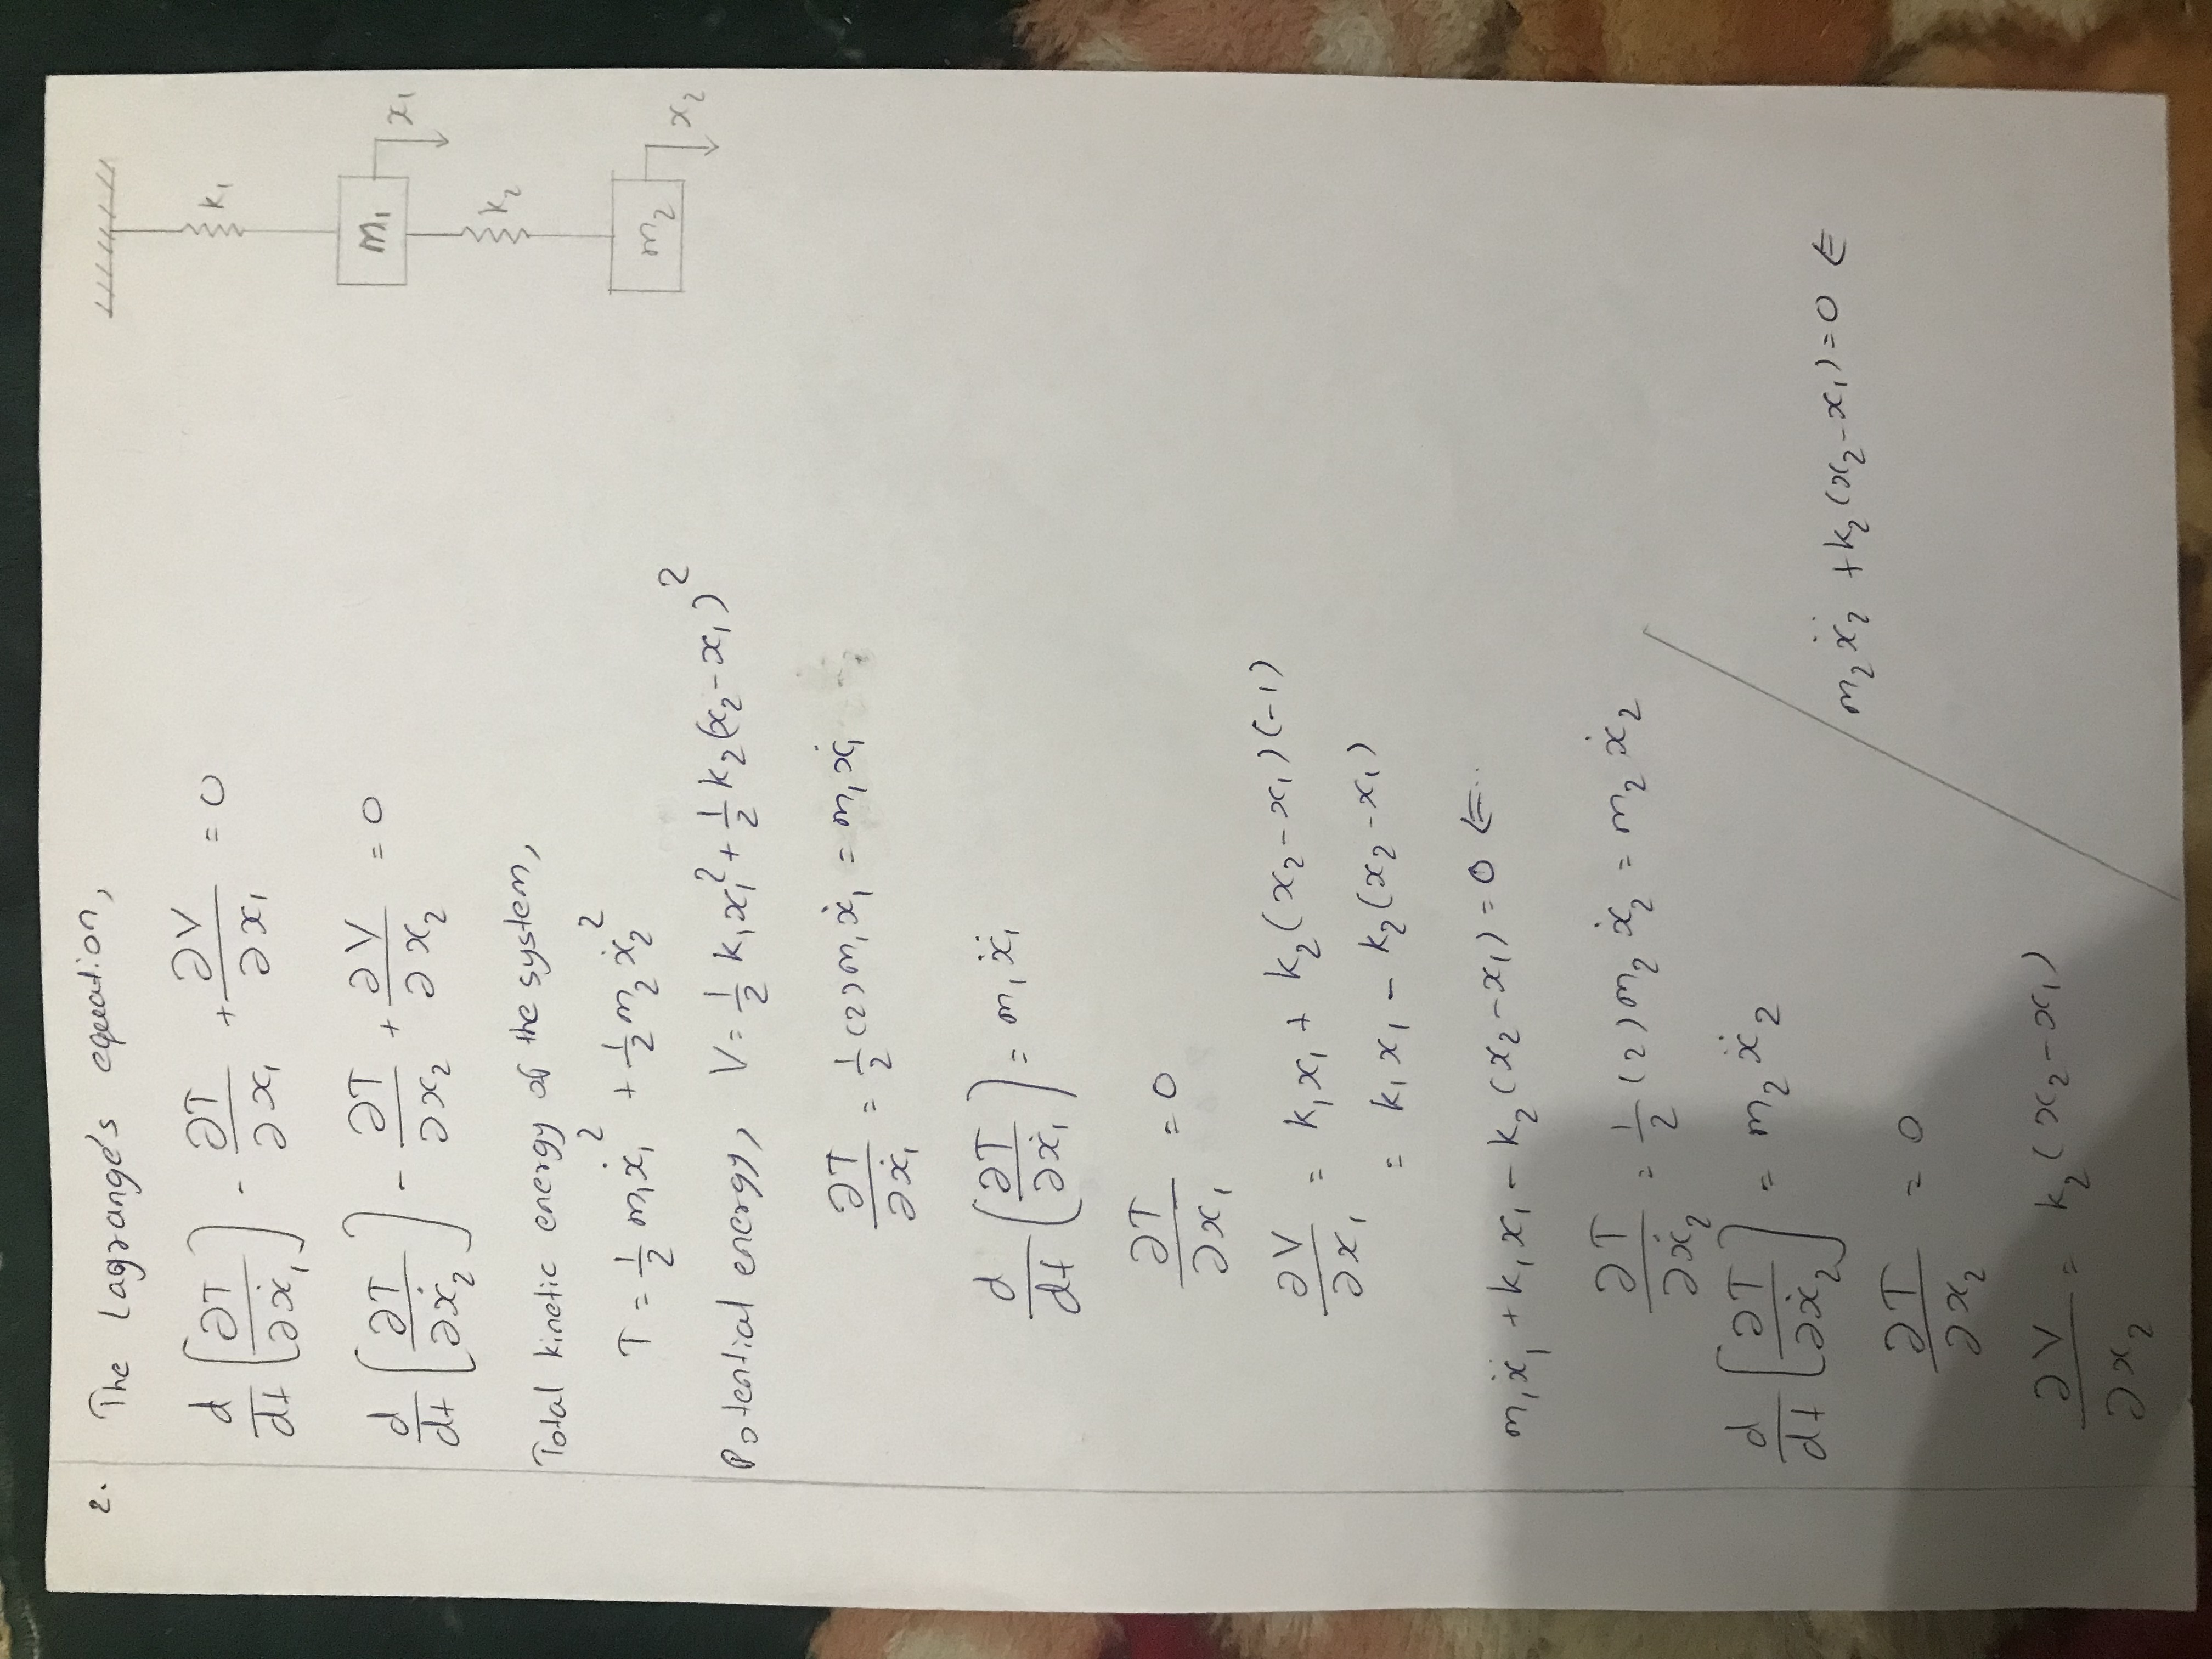 2. The Lagrange's equation,
d/dt [∂T/∂ẋ₁] - ∂T/∂x₁ + ∂V/∂x₁ = 0
d/dt [∂T/∂ẋ₂] - ∂T/∂x₂ + ∂V/∂x₂ = 0
Total kinetic energy of the system,
T = 1/2 m₁ẋ₁² + 1/2 m₂ẋ₂²
Potential energy, V = 1/2 k₁x₁² + 1/2 k₂(x₂-x₁)²
∂T/∂ẋ₁ = 1/2 (2) m₁ẋ₁ = m₁ẋ₁
d/dt (∂T/∂ẋ₁) = m₁ẍ₁
∂T/∂x₁ = 0
∂V/∂x₁ = k₁x₁ + k₂(x₂-x₁)(-1)
= k₁x₁ - k₂(x₂-x₁)
m₁ẍ₁ + k₁x₁ - k₂(x₂-x₁) = 0 ⇐..
∂T/∂ẋ₂ = 1/2 (2) m₂ẋ₂ = m₂ẋ₂
d/dt [∂T/∂ẋ₂] = m₂ẍ₂
∂T/∂x₂ = 0
∂V/∂x₂ = k₂(x₂-x₁)
m₂ẍ₂ + k₂(x₂-x₁) = 0 ⇐
k₁
m₁
x₁
k₂
m₂
x₂